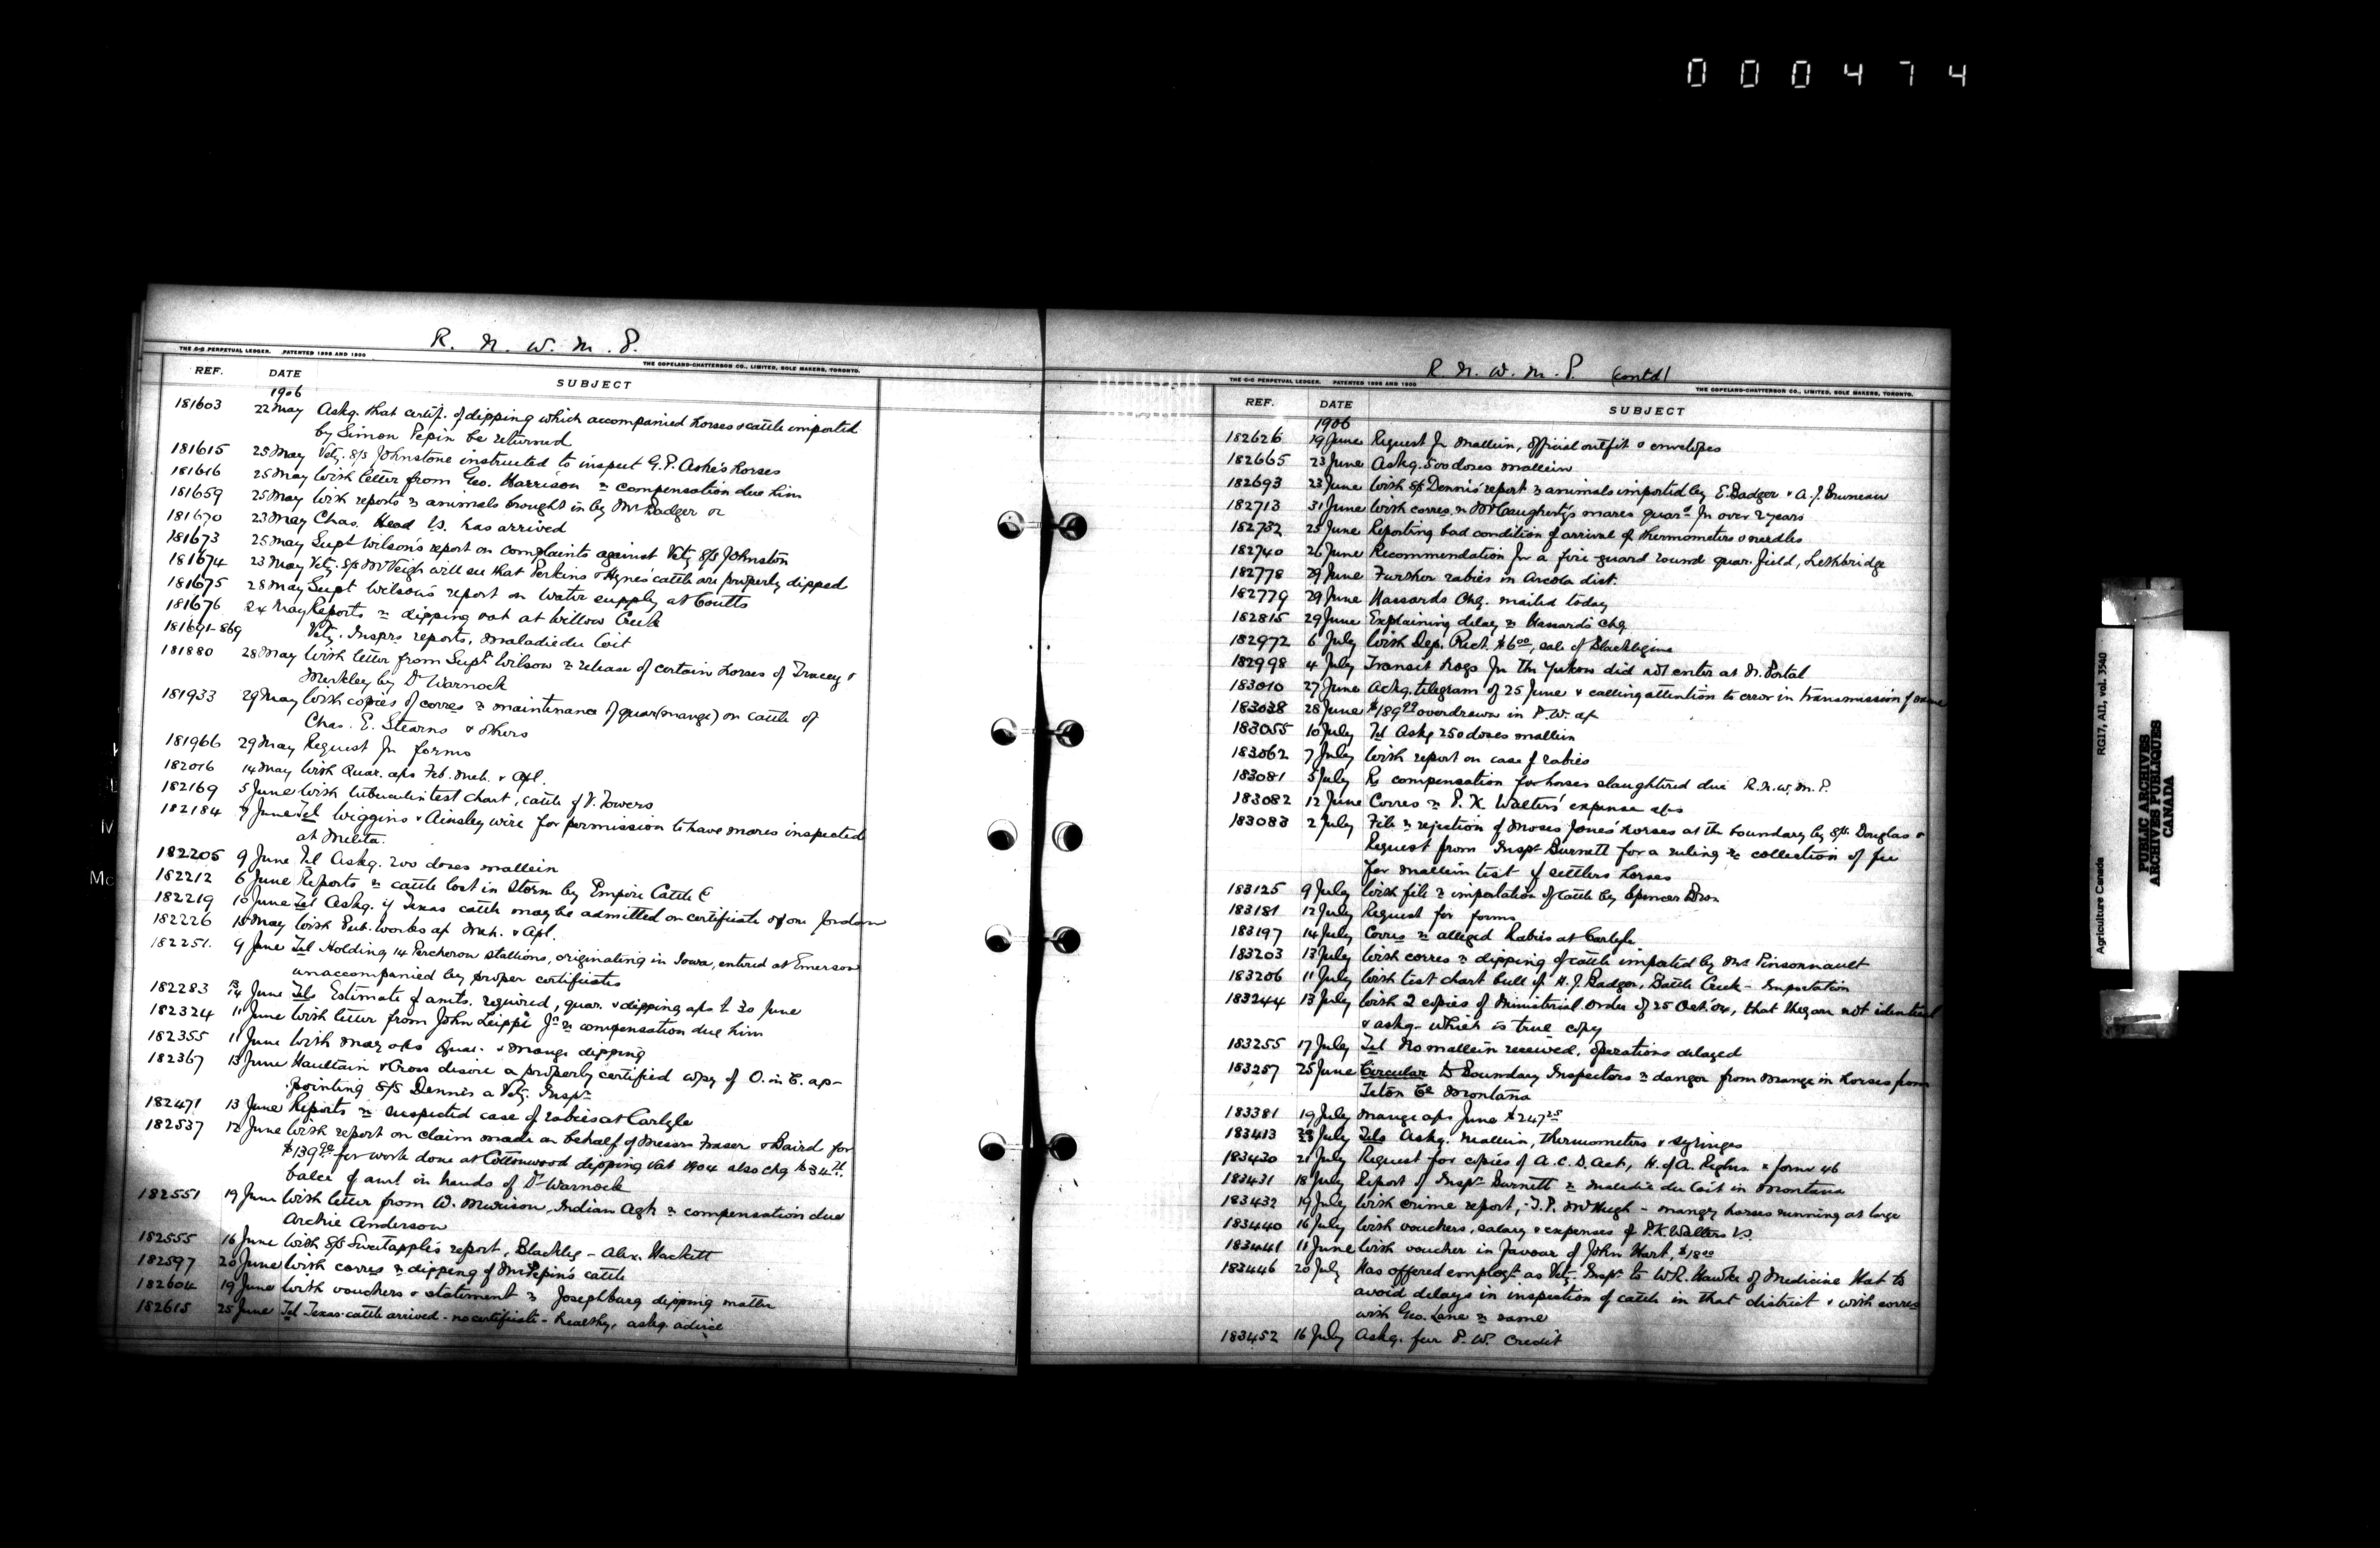 000474
R. N. W. M. P.
THE C-C PERPETUAL LEDGER. PATENTED 1896 AND 1900
THE COPELAND-CHATTERSON CO., LIMITED, SOLE MAKERS, TORONTO.
REF. DATE SUBJECT
1906
181603 22 May Askg. that certif. of dipping which accompanied horses & cattle imported
by Simon Pepin be returned
181615 25 May Vety. S/S Johnstone instructed to inspect G.P. Ashe's horses
181616 25 May With letter from Geo. Harrison re compensation due him
181659 25 May With reports re animals brought in by Mr Badger
181670 23 May Chas. Head V.S. has arrived
181673 25 May Supt Wilson's report on complaints against Vety S/S Johnston
181674 23 May Vety. S/S McVeigh will see that Perkins & Hynes' cattle are properly dipped
181675 28 May Supt Wilson's report on water supply at Coutts
181676 24 May Reports re dipping vat at Willow Creek
181691-869 Vety. Insprs reports, Maladie du Coit
181880 28 May With letter from Supt Wilson re release of certain horses of Tracey &
Merkley by Dr Warnock
181933 29 May With copies of corres re maintenance of quar (mange) on cattle of
Chas. E. Stearns & others
181966 29 May Request for forms
182016 14 May With Quar. a/cs Feb. Mch. & Apl.
182169 5 June With tuberculin test chart, cattle of V. Towers
182184 7 June Tel Wiggins & Ainsley wire for permission to have mares inspected
at Melita.
182205 9 June Tel Askg. 200 doses mallein
182212 6 June Reports re cattle lost in storm by Empire Cattle Co
182219 10 June Tel Askg. if Texas cattle may be admitted on certificate of one Jordan
182226 15 May With Pub. Works a/c Mch. & Apl.
182251. 9 June Tel Holding 14 Percheron stallions, originating in Iowa, entered at Emerson
unaccompanied by proper certificates
182283 13/14 June Tels Estimate of amts. required, quar. & dipping a/cs to 30 June
182324 11 June With letter from John Leippi Jr re compensation due him
182355 11 June With May a/cs Quar. & Mange dipping
182367 13 June Haultain & Cross desire a properly certified copy of O. in C. ap-
pointing S/S Dennis a Vety. Inspr
182471 13 June Reports re suspected case of rabies at Carlyle
182537 12 June With report on claim made on behalf of Messrs Fraser & Baird for
$139.90 for work done at Cottonwood dipping vat 1904 also chq $34.71.
balce of amt in hands of Dr Warnock
182551 19 June With letter from W. Murison, Indian Agt re compensation due
Archie Anderson
182555 16 June With S/S Sweetapple's report, Blackleg - Alex. Hackett
182597 20 June With corres re dipping of Mr Pepin's cattle
182604 19 June With vouchers & statement re Josephburg dipping matter
182615 25 June Tel Texas cattle arrived - no certificate - healthy, askg. advice
R. N. W. M. P. contd
THE C-C PERPETUAL LEDGER. PATENTED 1896 AND 1900
THE COPELAND-CHATTERSON CO., LIMITED, SOLE MAKERS, TORONTO.
REF. DATE SUBJECT
1906
182626 19 June Request for mallein, official outfit & envelopes
182665 23 June Askg. 500 doses mallein
182693 23 June With S/S Dennis' report re animals imported by E. Badger & A. J. Bruneau
182713 31 June With corres. re McCaugherty's mares quard for over 2 years
182732 25 June Reporting bad condition of arrival of thermometers & needles
182740 26 June Recommendation for a fire guard round quar. field, Lethbridge
182778 29 June Further rabies in Arcola dist.
182779 29 June Hassards Chq. mailed today
182815 29 June Explaining delay re Hassard's chq
182972 6 July With Dep. Rect. $6.00, sale of Blacklegine
182998 4 July Transit hogs for the Yukon did not enter at N. Portal
183010 27 June Ackg. telegram of 25 June & calling attention to error in transmission of same
183038 28 June $189.99 overdrawn in P.W. a/c
183055 10 July Tel Askg 250 doses mallein
183062 7 July With report on case of rabies
183081 5 July Re compensation for horses slaughtered due R.N.W.M.P.
183082 12 June Corres re P. K. Walters' expense a/cs
183083 2 July File re rejection of Moses Jones' horses at the boundary by S/S Douglas &
Request from Inspr Burnett for a ruling re collection of fee
for mallein test of settlers horses
183125 9 July With file re importation of cattle by Spencer Bros
183181 12 July Request for forms
183197 14 July Corres re alleged Rabies at Carlyle
183203 13 July With corres re dipping of cattle impated by Mr. Pinsonnault
183206 11 July With test chart bull of H. J. Badger, Battle Creek - Importation
183244 13 July With 2 copies of Ministerial Order of 25 Oct. '04, that they are not identical
& askg. which is true copy
183255 17 July Tel No mallein received, operations delayed
183257 25 June Circular to Boundary Inspectors re danger from mange in horses from
Teton Co Montana
183381 19 July Mange a/cs June $247.25
183413 July Tels Askg. mallein, thermometers & syringes
183430 21 July Request for copies of A.C.D. Act, H. of A. Regtns & form 46
183431 18 July Report of Inspr Burnett re Maladie du Coit in Montana
183432 19 July With crime report, - T.P. McHugh - mangy horses running at large
183440 16 July With vouchers, salary & expenses of P.K. Walters V.S.
183441 11 June With voucher in favour of John Hart, $18.00
183446 20 July Has offered employt as Vety. Inspr to W.R. Hawke of Medicine Hat to
avoid delays in inspection of cattle in that district & with corres
with Geo. Lane re same
183452 16 July Askg. fur P.W. Credit
Agriculture Canada RG17, AII, vol. 3540
PUBLIC ARCHIVES
ARCHIVES PUBLIQUES
CANADA